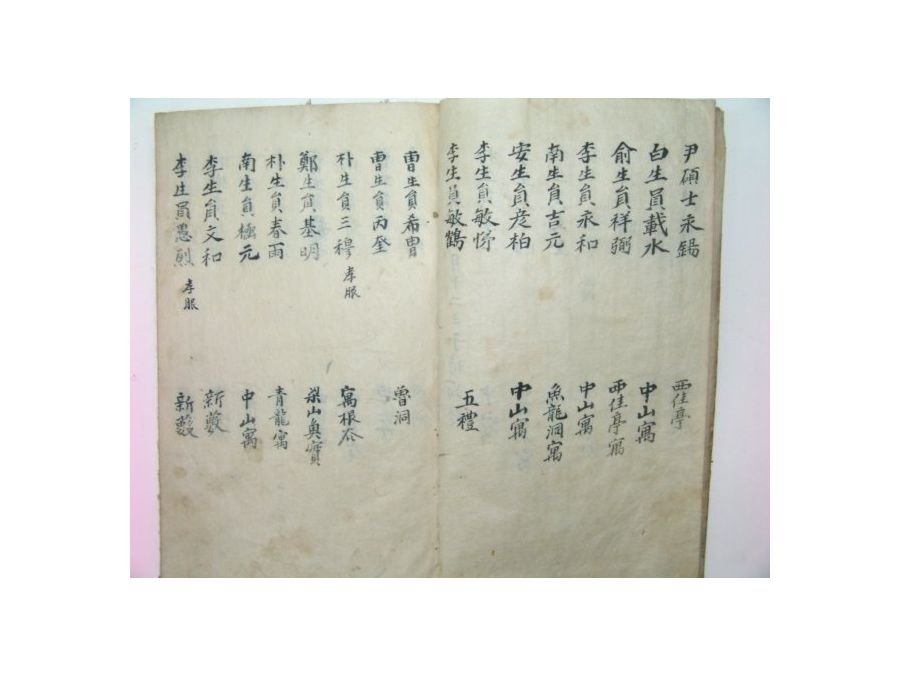 尹碩士永錫 西佳亭
白生員載水 中山寓
俞生員祥弼 西佳亭寓
李生員永和 中山寓
南生員吉元 魚龍洞寓
安生員彦柏 中山寓
李生員敏 五禮
李生員敏鶴
曺生員希胄 曾洞
曺生員丙奎
朴生員三穆 孝服 寓根谷
鄭生員基明 梨山奥賓
朴生員春雨 青龍寓
南生員極元 中山寓
李生員文和 新藪
李生員愚烈 孝服 新藪